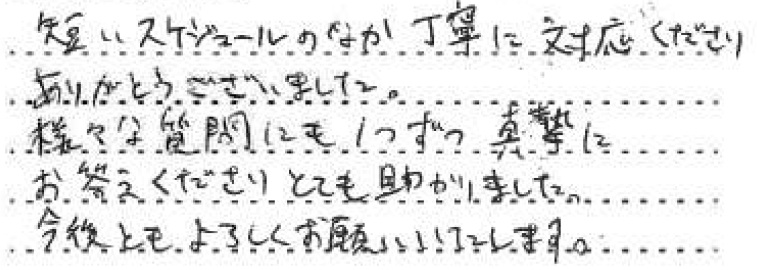 短いスケジュールのなか丁寧に対応くださり
ありがとうございました。
様々な質問にも1つずつ真摯に
お答えくださりとても助かりました。
今後ともよろしくお願いいたします。